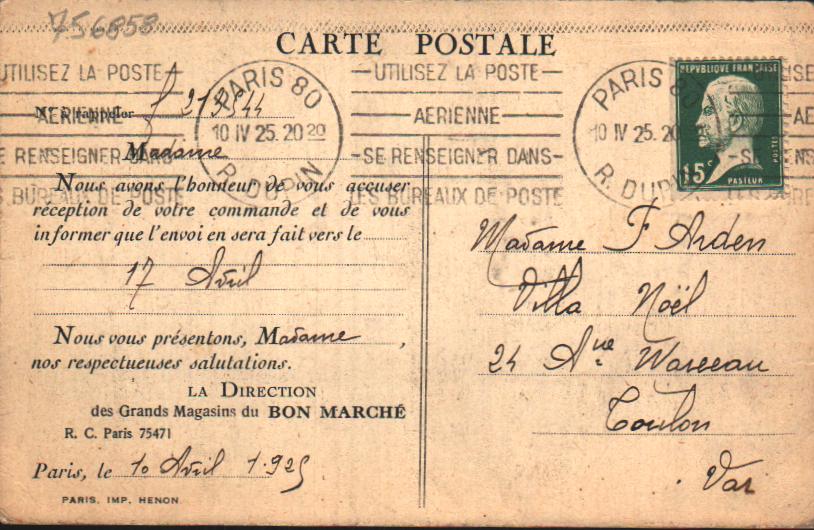 756858
CARTE POSTALE
N° à rappeler 213544
Madame
Nous avons l'honneur de vous accuser
réception de votre commande et de vous
informer que l'envoi en sera fait vers le
17 Avril
Nous vous présentons, Madame,
nos respectueuses salutations.
LA DIRECTION
des Grands Magasins du BON MARCHÉ
R. C. Paris 75471
Paris, le 10 Avril 1925
PARIS. IMP. HENON
UTILISEZ LA POSTE
AERIENNE
SE RENSEIGNER
BUREAUX DE POSTE
PARIS 80
10 IV 25. 20 20
R. DUPIN
UTILISEZ LA POSTE
AERIENNE
SE RENSEIGNER DANS
LES BUREAUX DE POSTE
PARIS 80
10 IV 25. 20
R. DUPIN
REPUBLIQUE FRANÇAISE
POSTES
15c
PASTEUR
Madame F Arden
Villa Noël
24 Ave
Toulon
Var